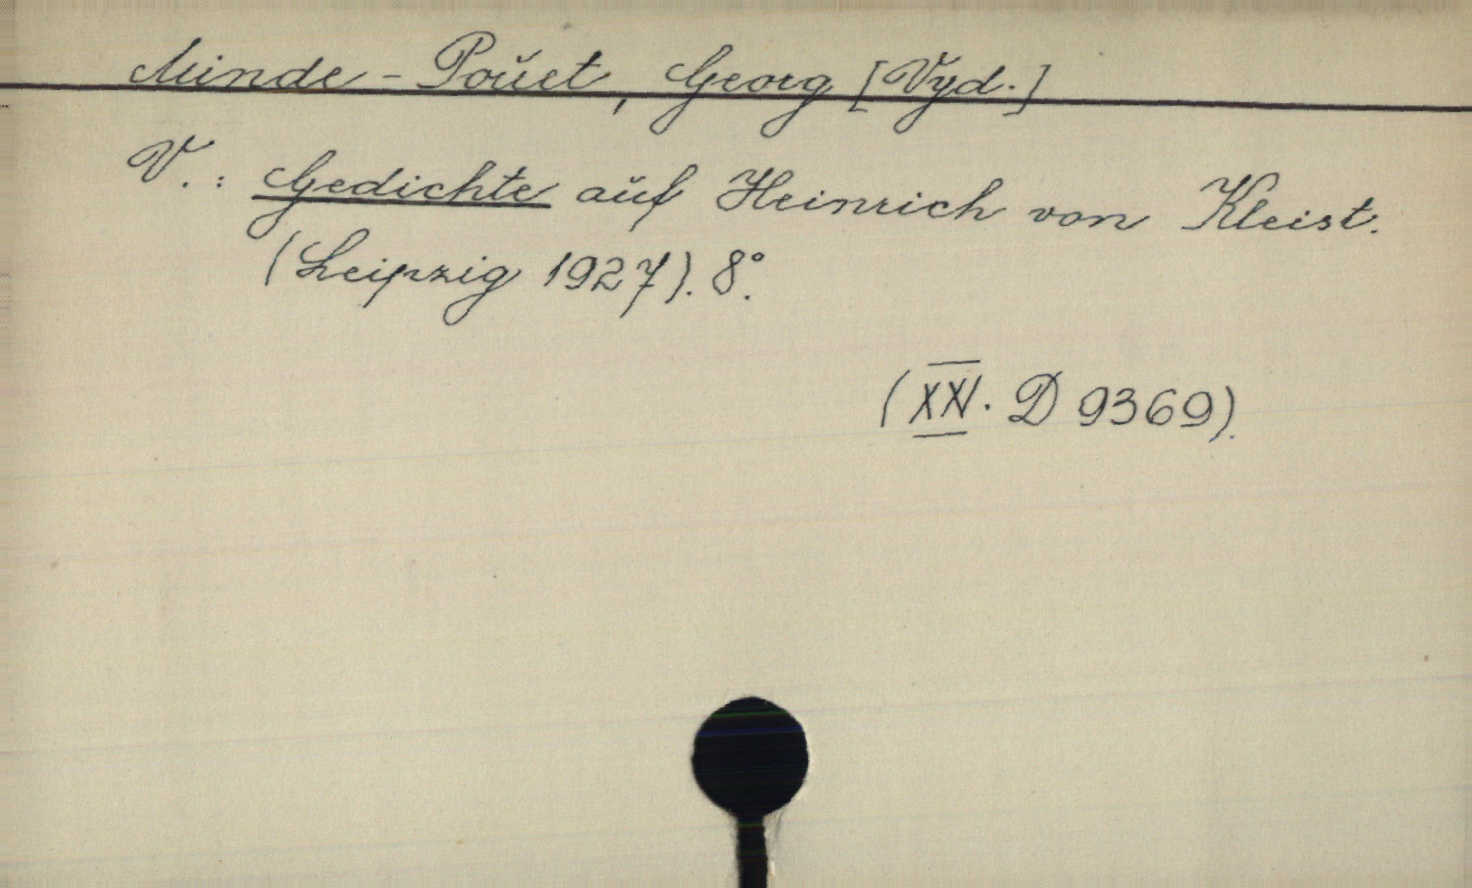 Minde-Pouet, Georg [Vyd.]
V.: Gedichte auf Heinrich von Kleist.
(Leipzig 1927). 8°.
(XXI. D 9369).